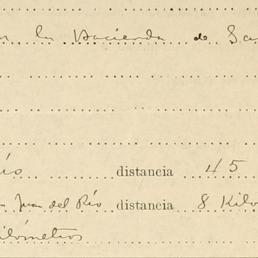 la Hacienda de Sa
ío distancia 45
n Juan del Río distancia 8 Kilo
ilómetros